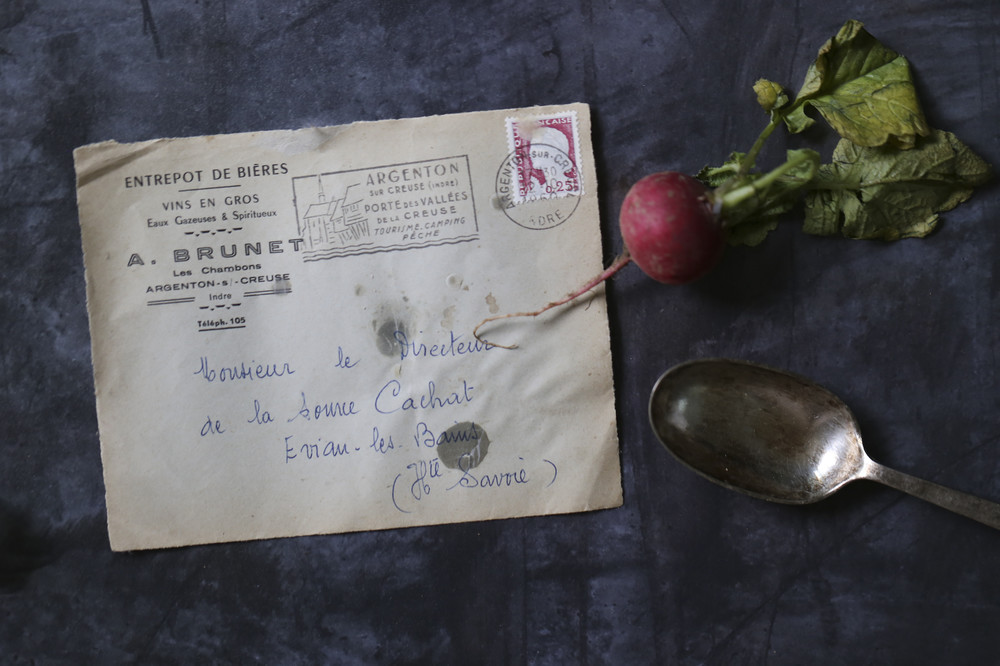 ENTREPOT DE BIÈRES
VINS EN GROS
Eaux Gazeuses & Spiritueux
A. BRUNET
Les Chambons
ARGENTON-s/-CREUSE
Indre
Téléph. 105
ARGENTON
SUR CREUSE (INDRE)
PORTE DES VALLÉES
DE LA CREUSE
TOURISME.CAMPING
PÊCHE
ÇAISE
0.25
ARGENTON-SUR-CR
INDRE
Monsieur le Directeur
de la Source Cachat
Evian-les-Bains
(Hte Savoie)